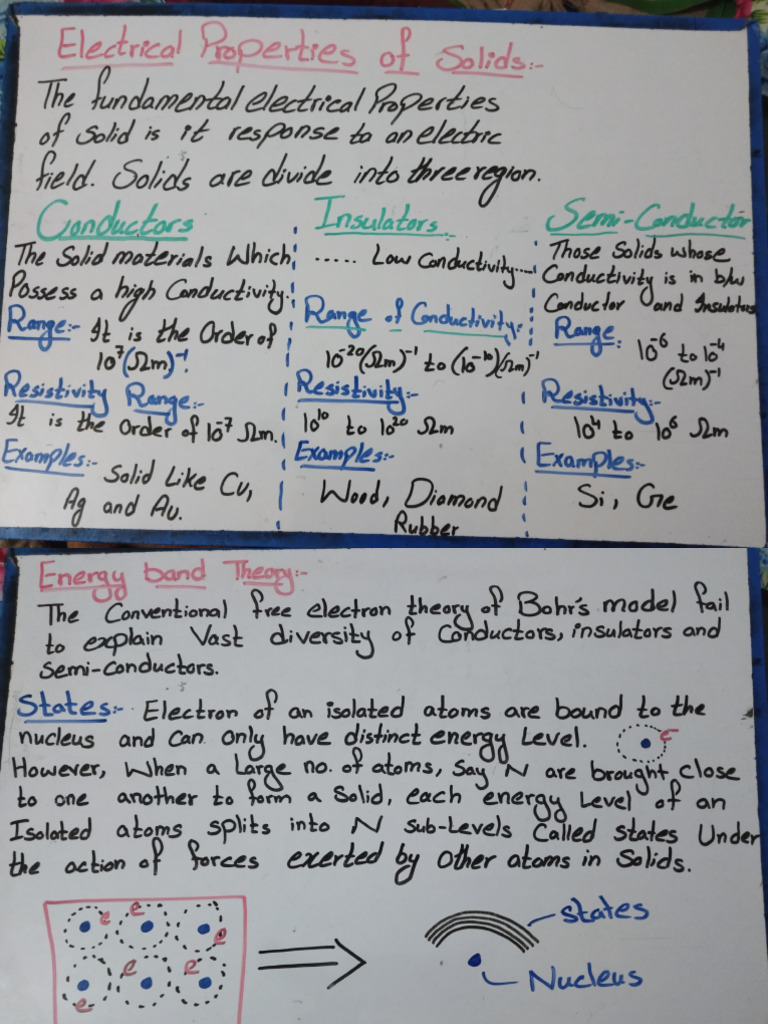 Electrical Properties of Solids:-
The fundamental electrical Properties
of Solid is it response to an electric
field. Solids are divide into three region.
Conductors
The Solid materials Which
Possess a high Conductivity.
Range:- It is the Order of
10⁷(Ωm)⁻¹.
Resistivity Range:-
It is the Order of 10⁻⁷ Ωm.
Examples:- Solid Like Cu,
Ag and Au.
Insulators
..... Low Conductivity.....
Range of Conductivity:-
10⁻²⁰(Ωm)⁻¹ to (10⁻¹⁰)(Ωm)⁻¹
Resistivity:-
10¹⁰ to 10²⁰ Ωm
Examples:-
Wood, Diamond
Rubber
Semi-Conductor
Those Solids whose
Conductivity is in b/w
Conductor and Insulators
Range: 10⁻⁶ to 10⁻⁴
(Ωm)⁻¹
Resistivity:-
10⁴ to 10⁶ Ωm
Examples:-
Si, Ge
Energy band Theory:-
The Conventional free electron theory of Bohr's model fail
to explain Vast diversity of Conductors, insulators and
Semi-Conductors.
States:- Electron of an isolated atoms are bound to the
nucleus and Can Only have distinct energy Level.
e⁻
However, When a Large no. of atoms, Say N are brought close
to one another to form a Solid, each energy Level of an
Isolated atoms splits into N sub-Levels Called States Under
the action of forces exerted by Other atoms in Solids.
e e e
e e e
States
Nucleus